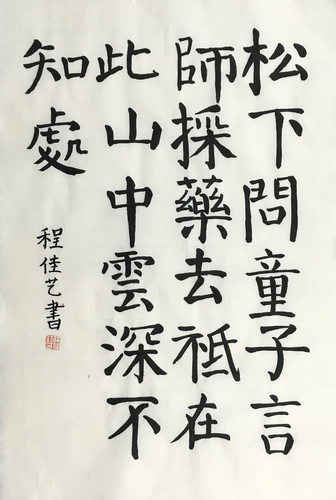 松下問童子言
師採藥去祗在
此山中雲深不
知處
程佳艺書